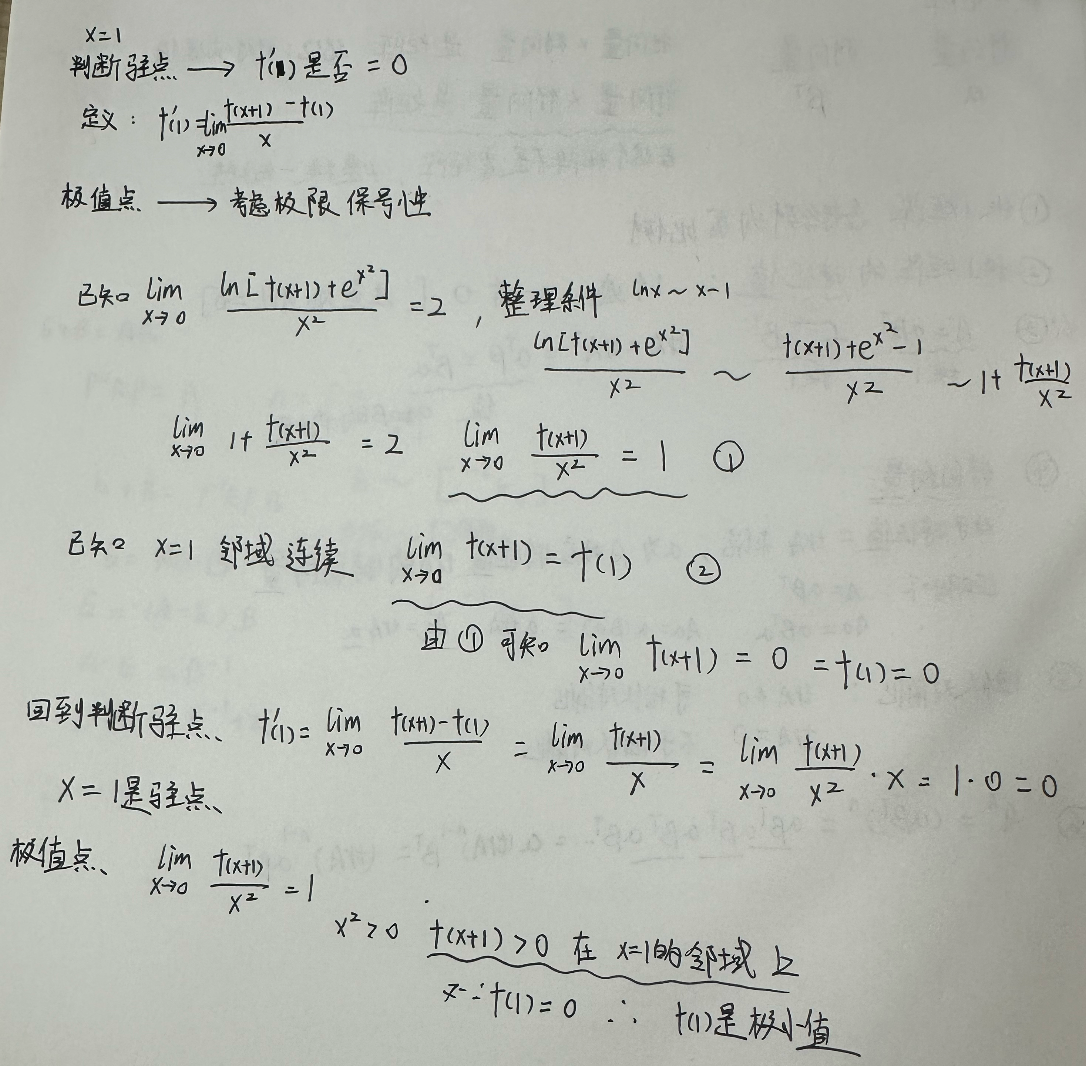 x=1
判断驻点 → f'(1) 是否 = 0
定义: f'(1)=lim_{x→0} \frac{f(x+1)-f(1)}{x}
极值点 → 考虑极限保号性
已知 lim_{x→0} \frac{ln[f(x+1)+e^{x^2}]}{x^2} = 2 , 整理条件 lnx ~ x-1
\frac{ln[f(x+1)+e^{x^2}]}{x^2} ~ \frac{f(x+1)+e^{x^2}-1}{x^2} ~ 1+\frac{f(x+1)}{x^2}
lim_{x→0} 1+\frac{f(x+1)}{x^2} = 2 lim_{x→0} \frac{f(x+1)}{x^2} = 1 ①
已知 x=1 邻域连续 lim_{x→0} f(x+1) = f(1) ②
由①可知 lim_{x→0} f(x+1) = 0 = f(1) = 0
回到判断驻点、 f'(1)= lim_{x→0} \frac{f(x+1)-f(1)}{x} = lim_{x→0} \frac{f(x+1)}{x} = lim_{x→0} \frac{f(x+1)}{x^2}·x = 1·0 = 0
x=1是驻点、
极值点、 lim_{x→0} \frac{f(x+1)}{x^2} = 1
x^2>0 f(x+1)>0 在 x=1的邻域上
∵ f(1)=0 ∴ f(1)是极小值